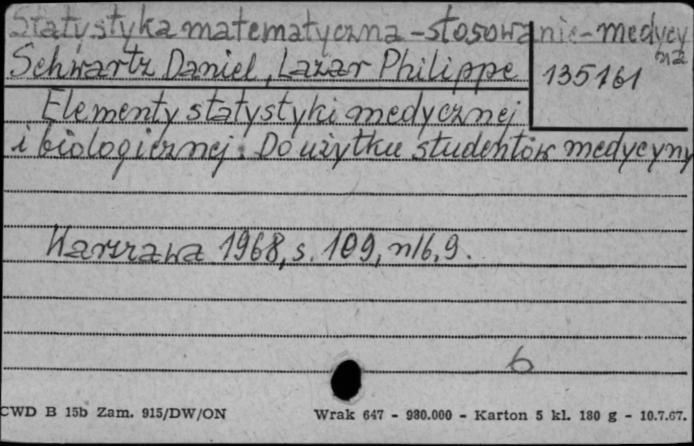 Statystyka matematyczna - stosowanie - medycy
na
Schwartz Daniel, Lazar Philippe
135161
Elementy statystyki medycznej
i biologicznej. Do użytku studentów medycyny
Warszawa 1968, s. 109, nlb, 9.
6
CWD B 15b Zam. 915/DW/ON
Wrak 647 - 980.000 - Karton 5 kl. 180 g - 10.7.67.